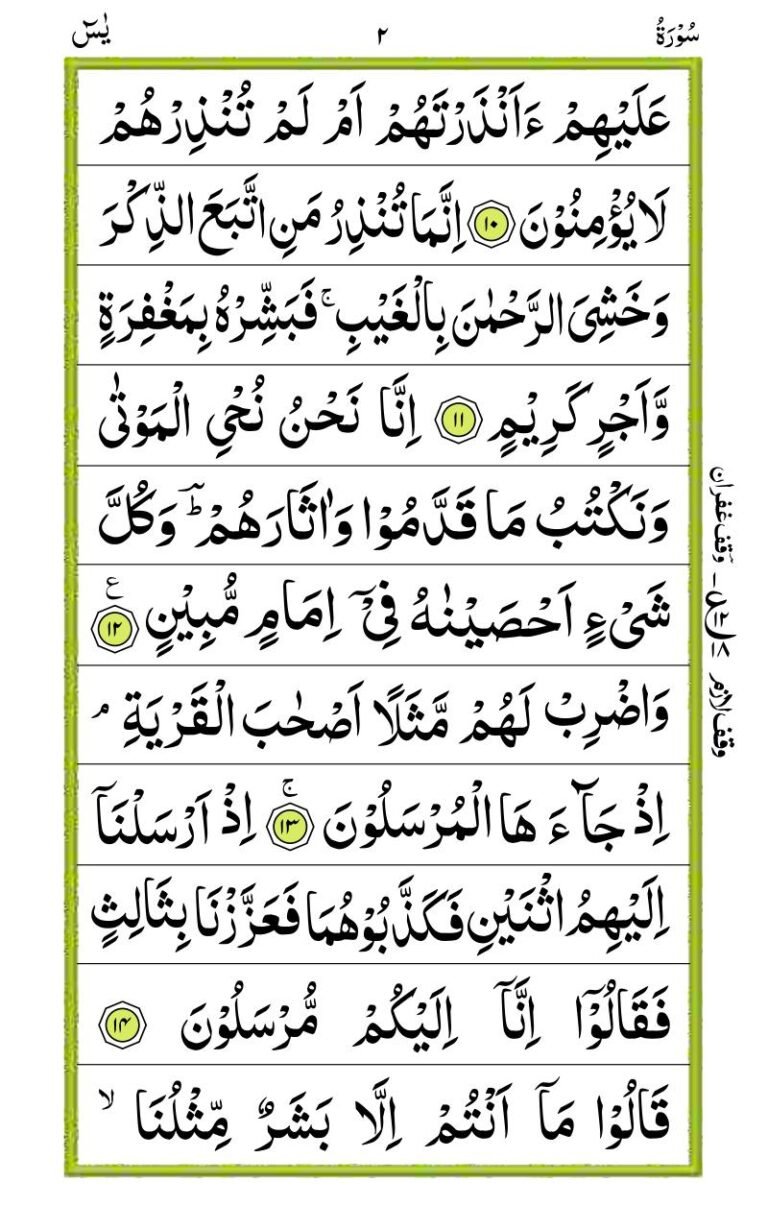 سُوْرَةُ ٢ يٰسٓ
عَلَيْهِمْ ءَاَنْذَرْتَهُمْ اَمْ لَمْ تُنْذِرْهُمْ
لَا يُؤْمِنُوْنَ ١٠ اِنَّمَا تُنْذِرُ مَنِ اتَّبَعَ الذِّكْرَ
وَخَشِىَ الرَّحْمٰنَ بِالْغَيْبِ ۚ فَبَشِّرْهُ بِمَغْفِرَةٍ
وَّاَجْرٍ كَرِيْمٍ ١١ اِنَّا نَحْنُ نُحْيِ الْمَوْتٰى
وَنَكْتُبُ مَا قَدَّمُوْا وَاٰثَارَهُمْ ؕ وَكُلَّ
شَىْءٍ اَحْصَيْنٰهُ فِىْٓ اِمَامٍ مُّبِيْنٍ ١٢ ع
وَاضْرِبْ لَهُمْ مَّثَلًا اَصْحٰبَ الْقَرْيَةِ ۘ
اِذْ جَآءَ هَا الْمُرْسَلُوْنَ ١٣ ۚ اِذْ اَرْسَلْنَآ
اِلَيْهِمُ اثْنَيْنِ فَكَذَّبُوْهُمَا فَعَزَّزْنَا بِثَالِثٍ
فَقَالُوْٓا اِنَّآ اِلَيْكُمْ مُّرْسَلُوْنَ ١٤
قَالُوْا مَآ اَنْتُمْ اِلَّا بَشَرٌ مِّثْلُنَا ۙ
وقف غفران
وقف لازم